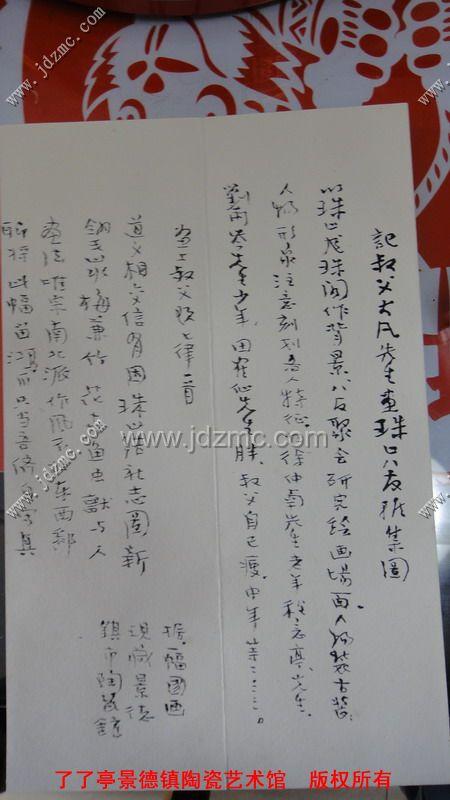 记叔父大凡先生画珠山八友雅集图
以珠山龙珠阁作背景八友聚会研究绘画场面人物装古装
人物形象注意刻划各人特征徐仲南先生老年程意亭先生
刘雨岑先生少年,田鹤仙先生胖,叔父自己瘦,中年等……。
画上叔父题七律一首
道义相交信有因珠山结社志图新
翎毛山水梅兼竹花卉鱼虫兽与人
画法唯宗南北派作风不东西邻
聊将此幅留鸿爪只当吾侪自写真
振幅国画
现藏景德
镇市陶瓷馆
www.jdzmc.com
www.jdzmc.com
www.jdzmc.com
www.jdzmc.com
www.jdzmc.com
了了亭景德镇陶瓷艺术馆 版权所有